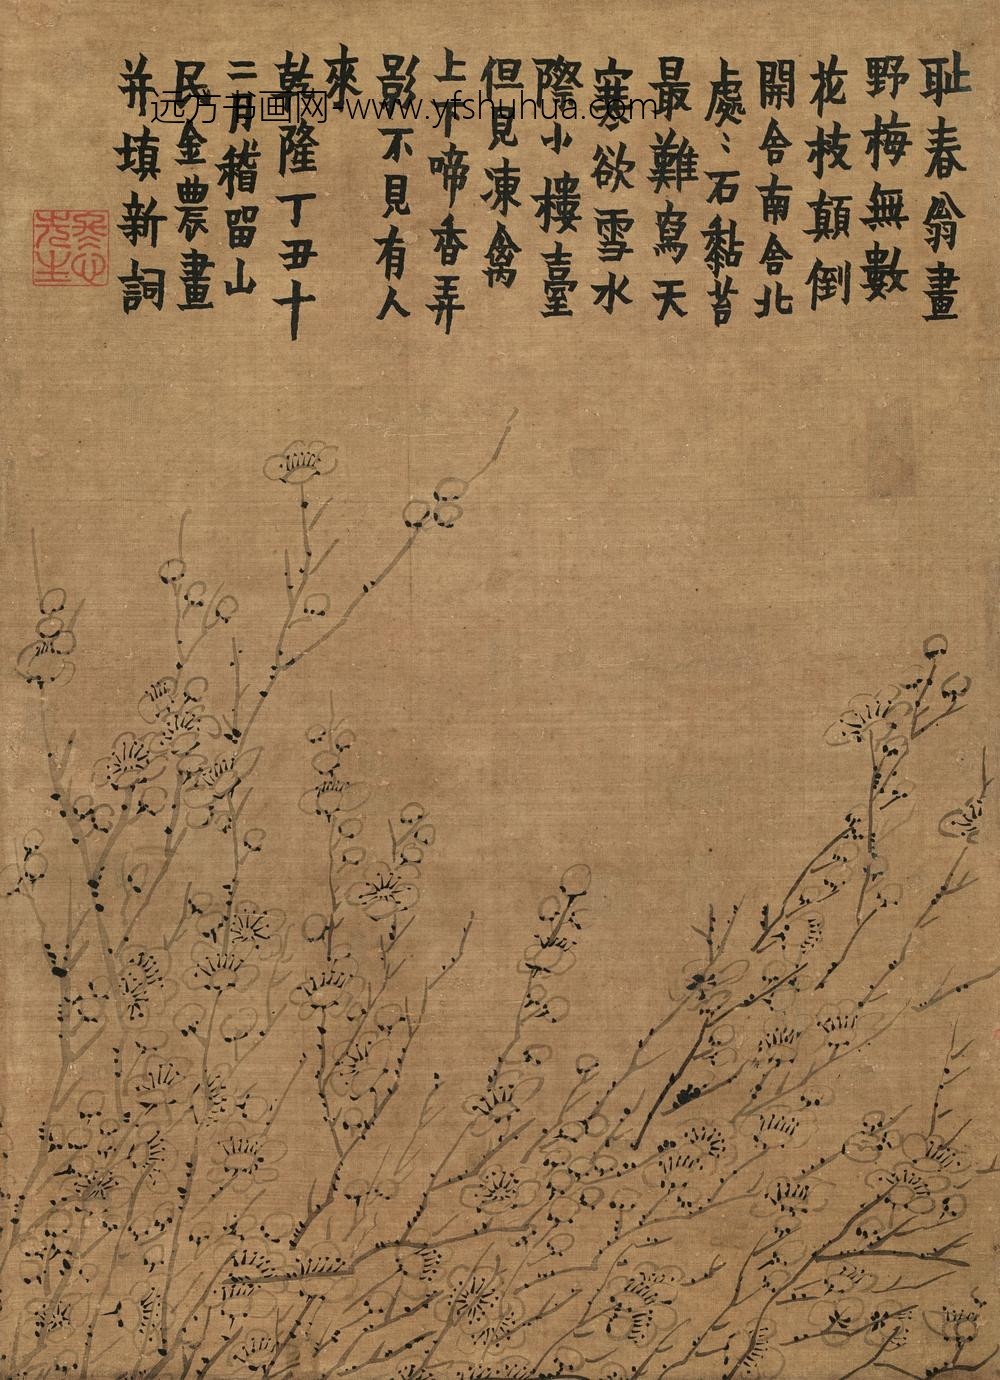 耻春翁畫
野梅無數
花枝顛倒
開舍南舍北
處〻石黏苔
最難寫天
寒欲雪水
際小樓臺
但見凍禽
上下啼香弄
影不見有人
來
乾隆丁丑十
二月稽留山
民金農畫
并填新詞
远方书画网-www.yfshuhua.com